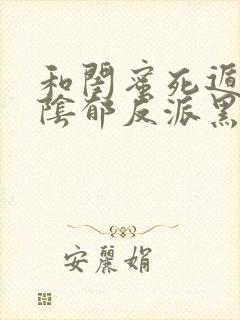 和閨蜜死遁
陰郁反派黑
安麗娟